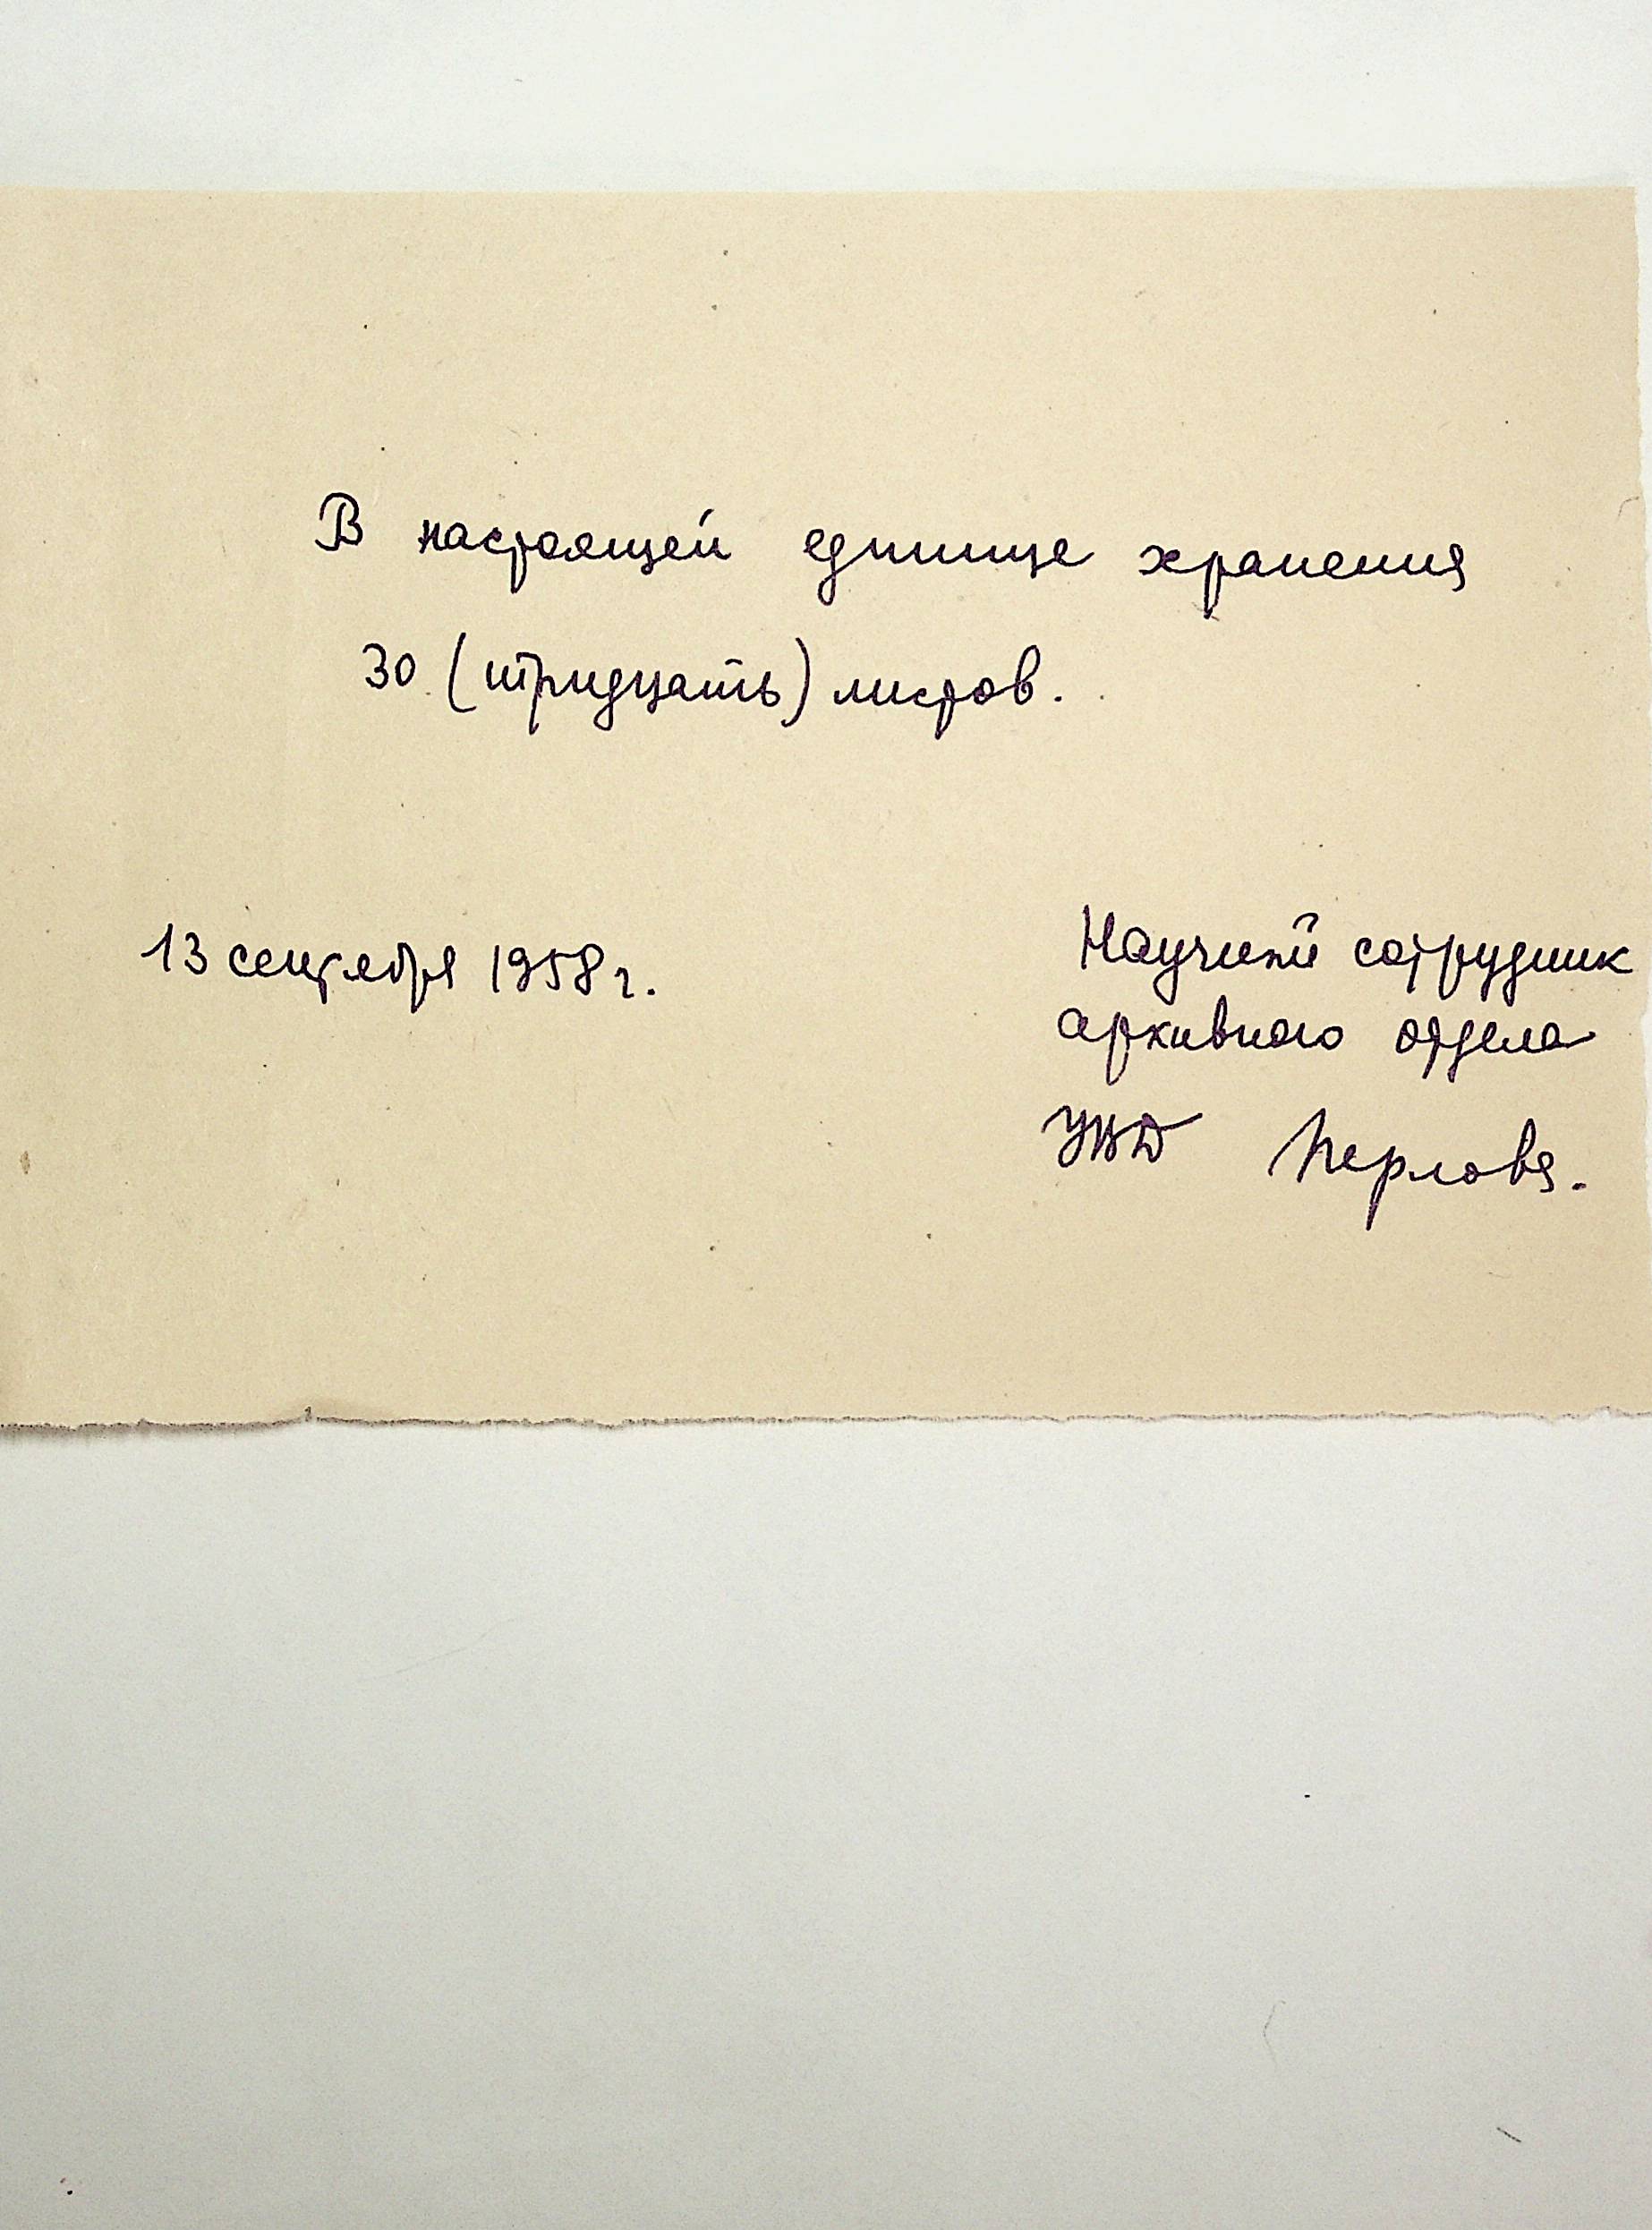 В настоящей единице хранения
30 (тридцать) листов.
13 сентября 1958 г.
Научный сотрудник
архивного отдела
УВД Перлова.